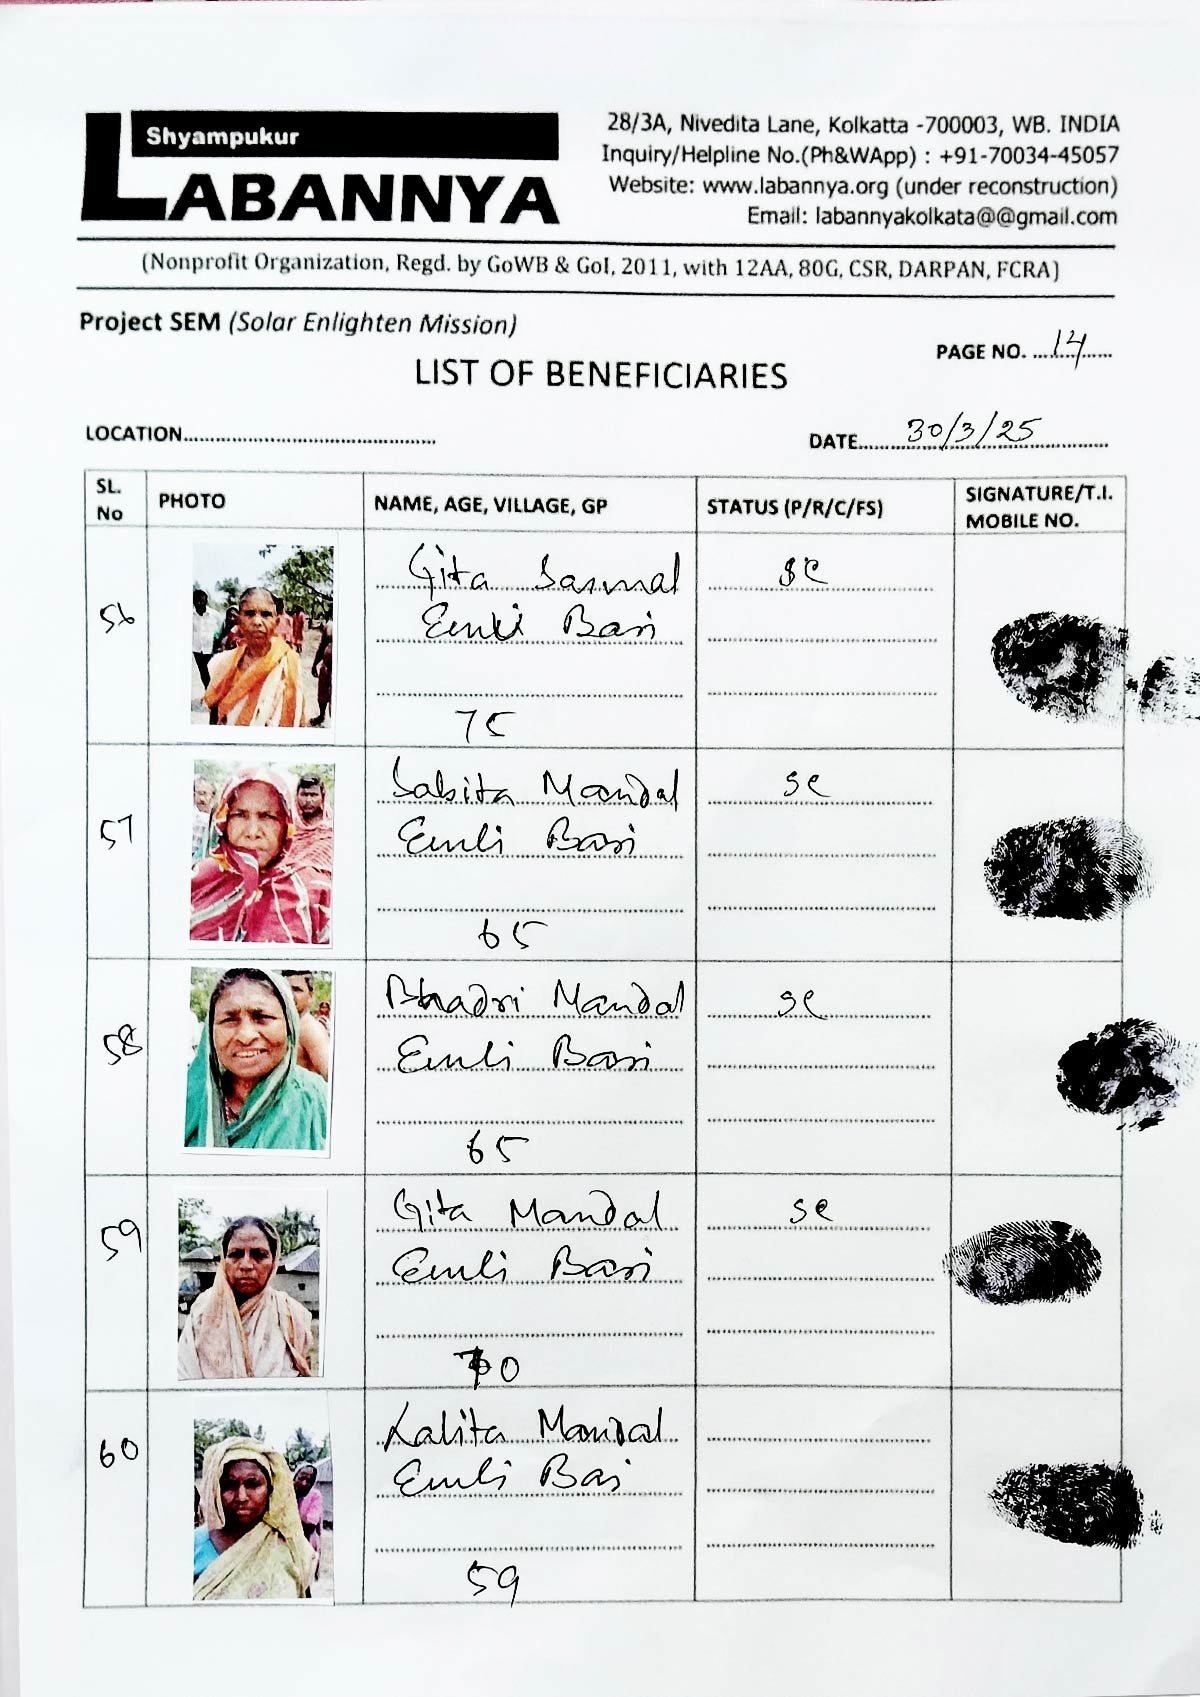 Shyampukur
LABANNYA
28/3A, Nivedita Lane, Kolkatta -700003, WB. INDIA
Inquiry/Helpline No.(Ph&WApp) : +91-70034-45057
Website: www.labannya.org (under reconstruction)
Email: labannyakolkata@@gmail.com
(Nonprofit Organization, Regd. by GoWB & GoI, 2011, with 12AA, 80G, CSR, DARPAN, FCRA)
Project SEM (Solar Enlighten Mission)
PAGE NO. 14
LIST OF BENEFICIARIES
LOCATION
DATE 30/3/25
SL. No
PHOTO
NAME, AGE, VILLAGE, GP
STATUS (P/R/C/FS)
SIGNATURE/T.I. MOBILE NO.
56
Gita Sasmal
Emli Bari
75
SC
57
Sabita Mandal
Emli Bari
65
SC
58
Bhadri Mandal
Emli Bari
65
SC
59
Gita Mandal
Emli Bari
70
SC
60
Lalita Mandal
Emli Bari
59